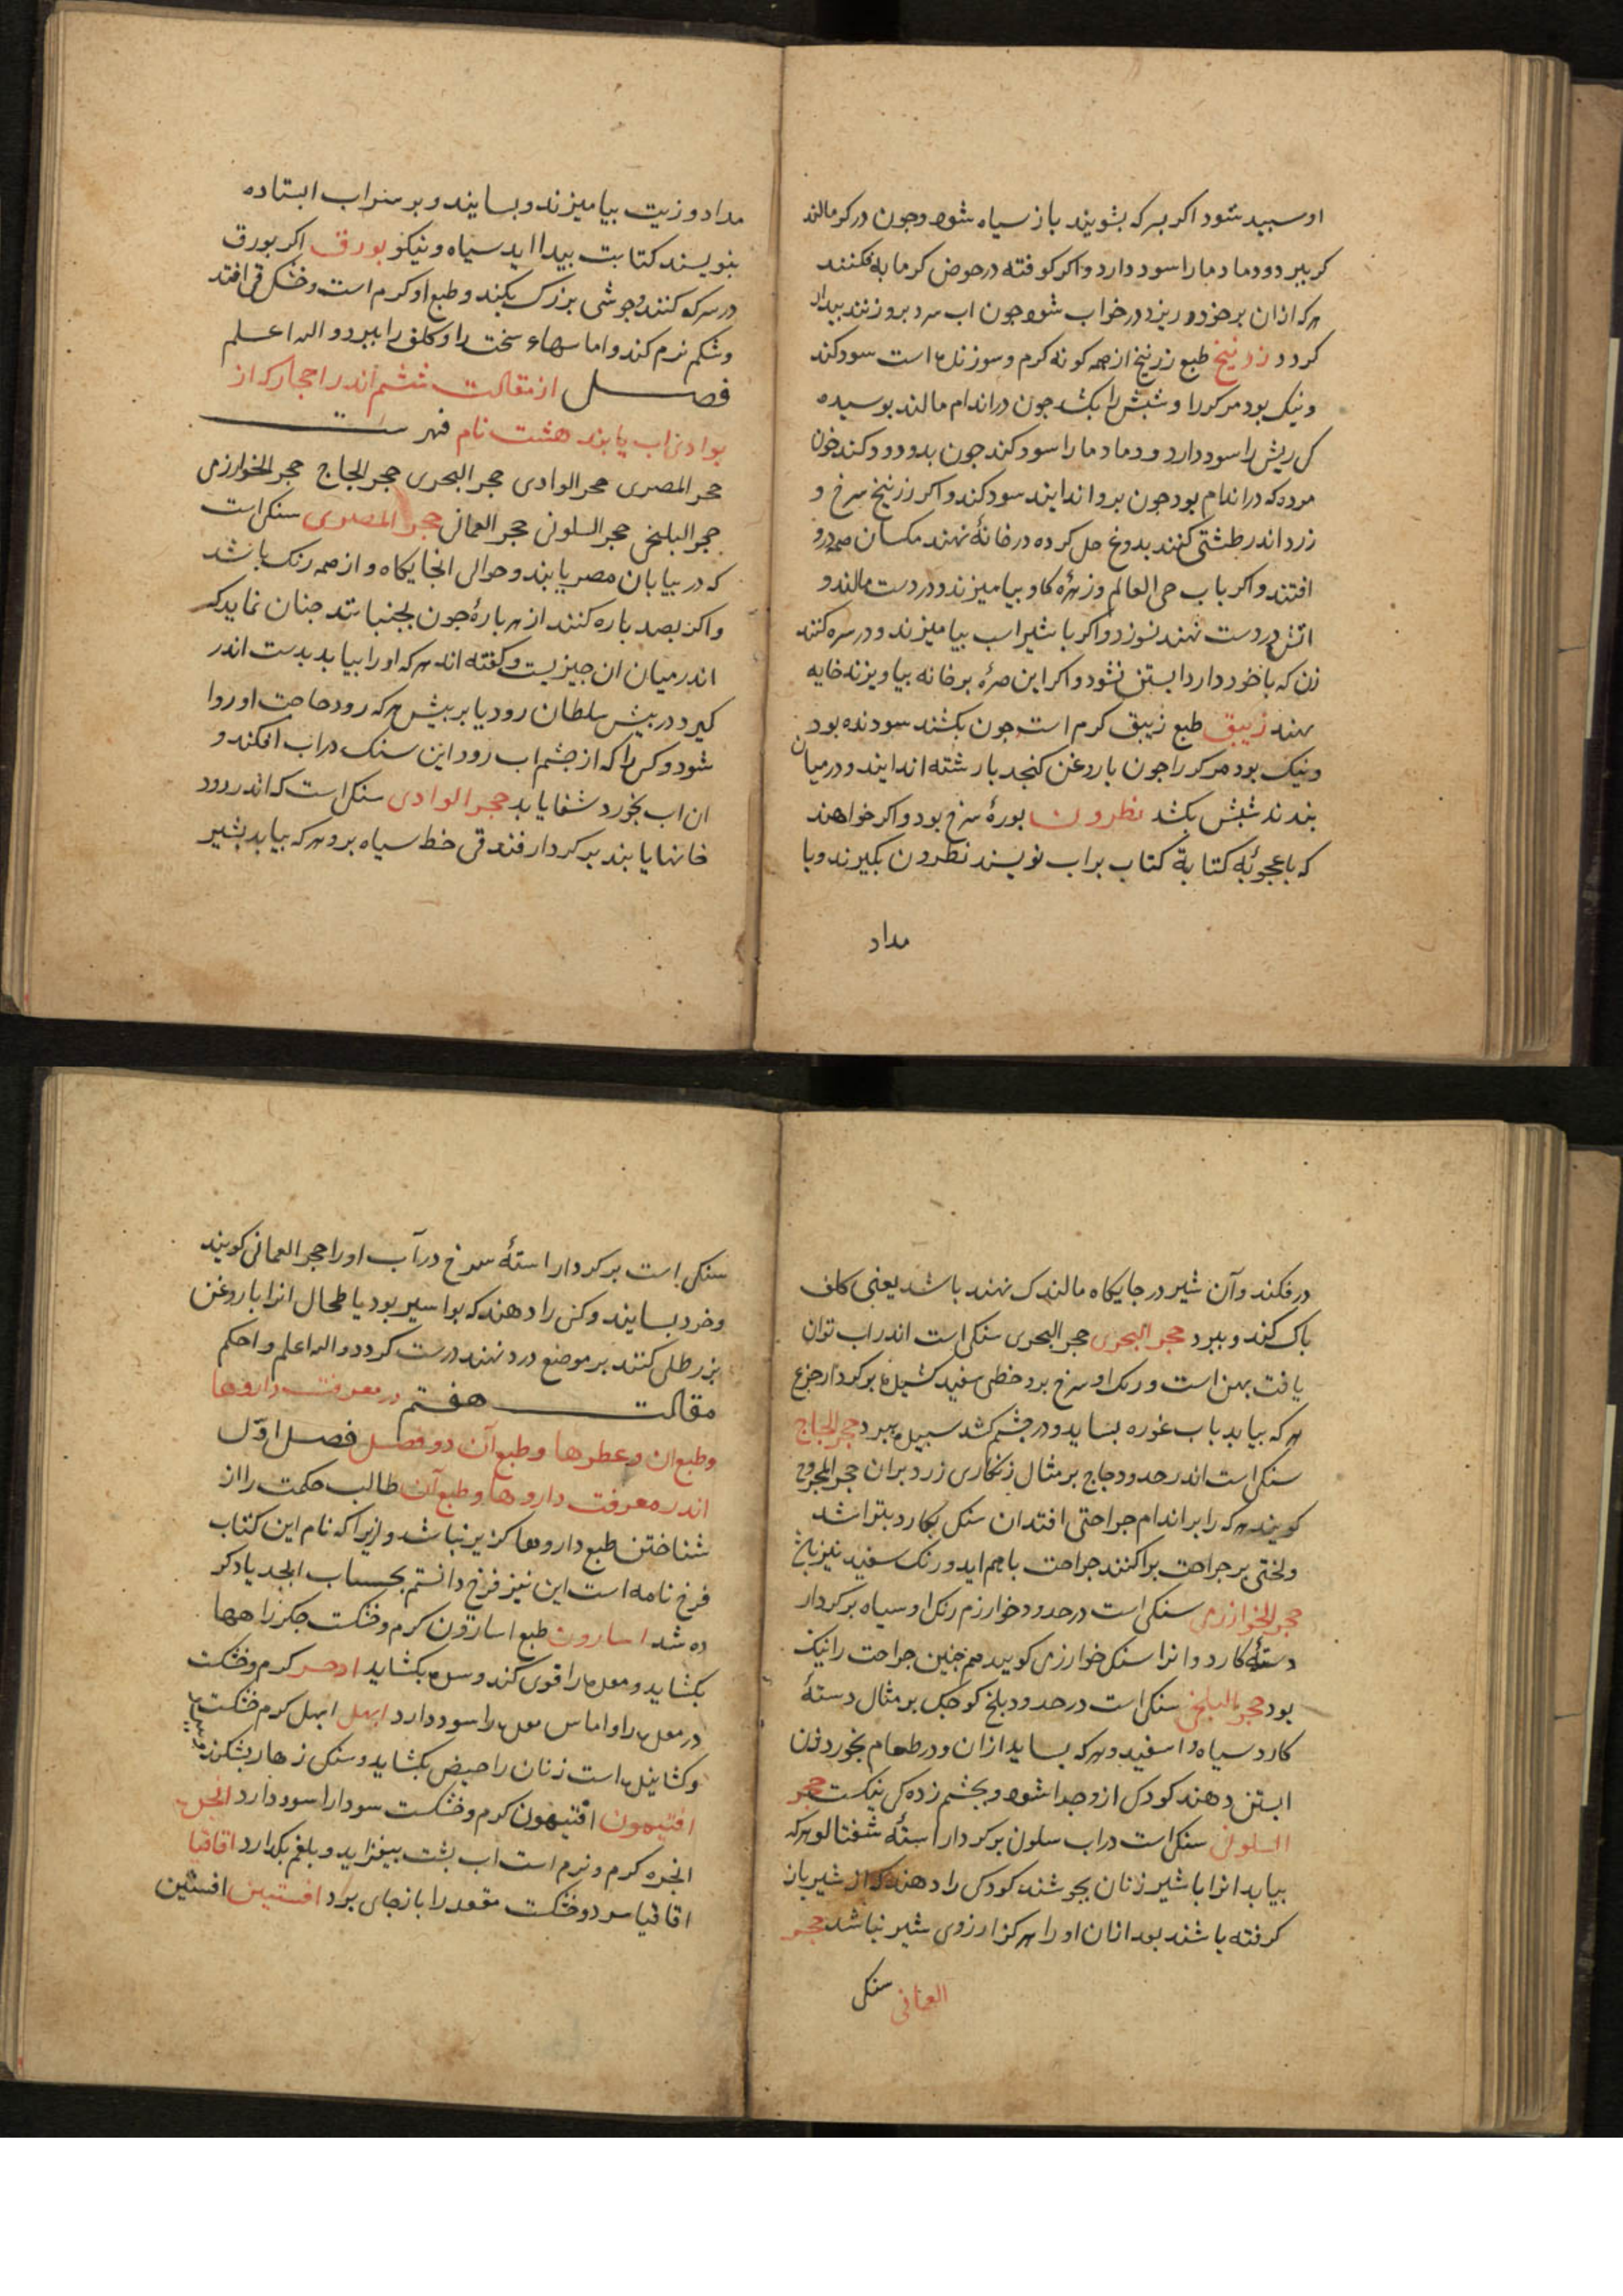 او سبید شود اکر بسرکه بشویند باز سیاه شود وجون در کر مالند
کر ببرد ودمادما را سود دارد واکر کوفته در حوض کرمابه فکنند
هرکه ازان بر خود ریزد در خواب شود جون اب سرد بروزنند بیدار
کردد زرنیخ طبع زرنیخ از همه کونه کرم وسوزنده است سود کند
ونیک بود مر کر را وشبش را بکشد جون در اندام مالند بوسیده
کل ریش را سود دارد ودمادما را سود کند جون بدو دود کند خون
مرده که در اندام بود جون برو اندایند سود کند واکر زرنیخ سرخ و
زرد اندر طشتی کنند بدوغ حل کرده در خانه نهند مکسان همه درو
افتند واکر باب حی العالم وزهرهٔ کاو بیامیزند ودر دست مالند و
اتش در دست نهند نسوزد واکر با شیر اسب بیامیزند ودر سره کنند
زن که با خود دارد ابستن نشود واکر این صره بر خانه بیاویزند خایه
نهند زیبق طبع زیبق کرم است جون بکشند سودنده بود
ونیک بود مر کر را جون با روغن کنجد بارشته اندایند ودر میان
بندند شبش بکشد نطرون بورهٔ سرخ بود واکر خواهند
که باعجوبه کتابة کتاب بر اب نویسند نطرون بکیرند وبا
مداد
مداد وزیت بیامیزند وبسایند وبر سر اب ایستاده
بنویسند کتابت بیدا اید سیاه ونیکو بورق اکر بورق
در سرکه کنند وجوشی بزرک بکند وطبع او کرم است وخشک قی افتد
وشکم نرم کند واماسهاء سخت را وکلف را ببرد والله اعلم
فصل از مقالت ششم اندر احجار که از
بوادی اب یابند هشت نام فهرست
حجر المصری حجر الوادی حجر البحری حجر الجاج حجر الخوارزمی
حجر البلخی حجر السلونی حجر العمانی حجر المصری سنکی است
که در بیابان مصر یابند وحوالی انجایکاه واز همه رنک باشد
واکر بصد باره کنند از هر بارهٔ جون بجنبانند جنان نماید که
اندر میان ان جیزیست وکفته اند هر که اورا بیابد بدست اندر
کیرد ودر بیش سلطان رود یا بر بیش هر که رود حاجت او روا
شود وکس را که از جشم اب رود این سنک در اب افکند و
ان اب بخورد شفا یابد حجر الوادی سنکی است که اندر رود
خانها یابند بر کردار فندقی خط سیاه برو هر که بیابد بشیر
در فکند وآن شیر در جایکاه مالند ک نهند باشد یعنی کلف
باک کند وببرد حجر البحری حجر البحری سنکی است اندر اب توان
یافت بهن است ورنک او سرخ برو خطی سفید کشیده بر کردار جزع
هر که بیابد باب غوره بساید ودر جشم کشد سبیل ببرد حجر الجاج
سنکی است اندر حدود جاج بر مثال زنکاری زرد بران حجر المجروح
کویند هر که را بر اندام جراحتی افتد ان سنک بکارد بتراشد
ولختی بر جراحت براکنند جراحت باهم اید ورنک سفید نیز باشد
حجر الخوارزمی سنکی است در حدود خوارزم رنک او سیاه بر کردار
دستهٔ کارد وانرا سنک خوارزمی کویند هم جنین جراحت را نیک
بود حجر البلخی سنکی است در حدود بلخ کوجک بر مثال دستهٔ
کارد سیاه واسفید وهر که بساید ازان ودر طعام بخورد زن
ابستن دهند کودک ازو جدا شود وبجشم زده کی نیکست حجر
السلونی سنکی است در اب سلون بر کردار استهٔ شفتالو هر که
بیابد انرا با شیر زنان بجوشند کودکی را دهند که از شیر باز
کرفته باشند بعد ازان او را هرکز ارزوی شیر نباشد حجر
العمانی سنک
سنکی است بر کردار استهٔ سرخ در آب اورا حجر العمانی کویند
وخرد بسایند وکسی را دهند که بواسیر بود یا طحال انرا با روغن
بزر طلی کنند بر موضع درد نهند درست کردد والله اعلم واحکم
مقالت هفتم در معرفت داروها
وطبع ان وعطرها وطبع آن دو فصل فصل اوّل
اندر معرفت داروها وطبع آن طالب حکمت را از
شناختن طبع داروها کزیر نباشد وازیرا که نام این کتاب
فرخ نامه است این نیز فرخ دانستم بحساب ابجد یاد کر
ده شد اسارون طبع اسارون کرم وخشکت جکر را هها
بکشاید ومعده را قوی کند وسده بکشاید ادخر کرم وخشکت
درمعده را واماس معده را سود دارد ابهل ابهل کرم خشکت
وکشاینده است زنان را حیض بکشاید وسنک زهار بشکند
افتیمون افتیمون کرم وخشکت سودا را سود دارد انجره
انجره کرم ونرم است اب بشت بیفزاید وبلغم بکدارد اقاقیا
اقاقیا سرد وخشکت مقعد را باز جای برد افستین افستین